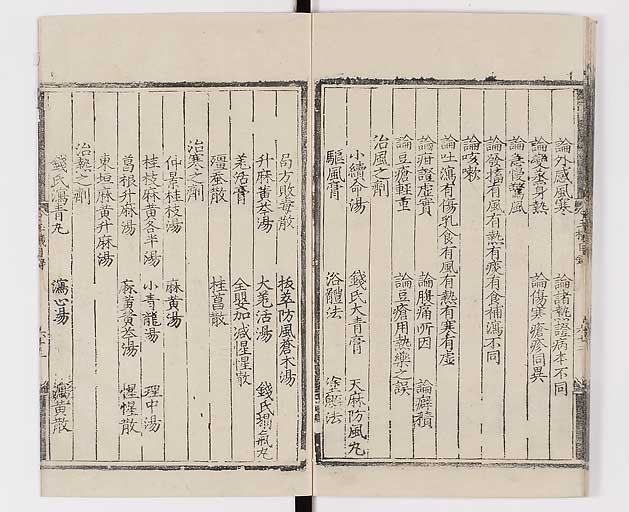 論外感風寒 論諸熱證病本不同
論變蒸身熱 論傷寒瘡疹同異
論急慢驚風
論發搐有風有熱有痰有食補瀉不同
論吐瀉有傷乳食有風有熱有寒有虛
論咳嗽
論疳證虛實 論腹痛所因 論癖積
論豆瘡輕重 論豆瘡用熱藥之誤
治風之劑
小續命湯 錢氏大青膏 天麻防風丸
驅風膏 浴體法 塗顖法
局方敗毒散 拔萃防風蒼朮湯
升麻黃芩湯 大羌活湯 錢氏搨氣丸
羌活膏 全嬰加減惺惺散
殭蚕散 桂菖散
治寒之劑
仲景桂枝湯 麻黃湯
桂枝麻黃各半湯 小青龍湯 理中湯
葛根升麻湯 麻黃黃芩湯 惺惺散
東垣麻黃升麻湯
治熱之劑
錢氏瀉青丸 瀉心湯 瀉黃散